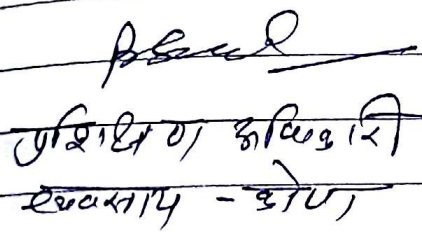 प्रशिक्षण अधिकारी
व्यवसाय - कोपा